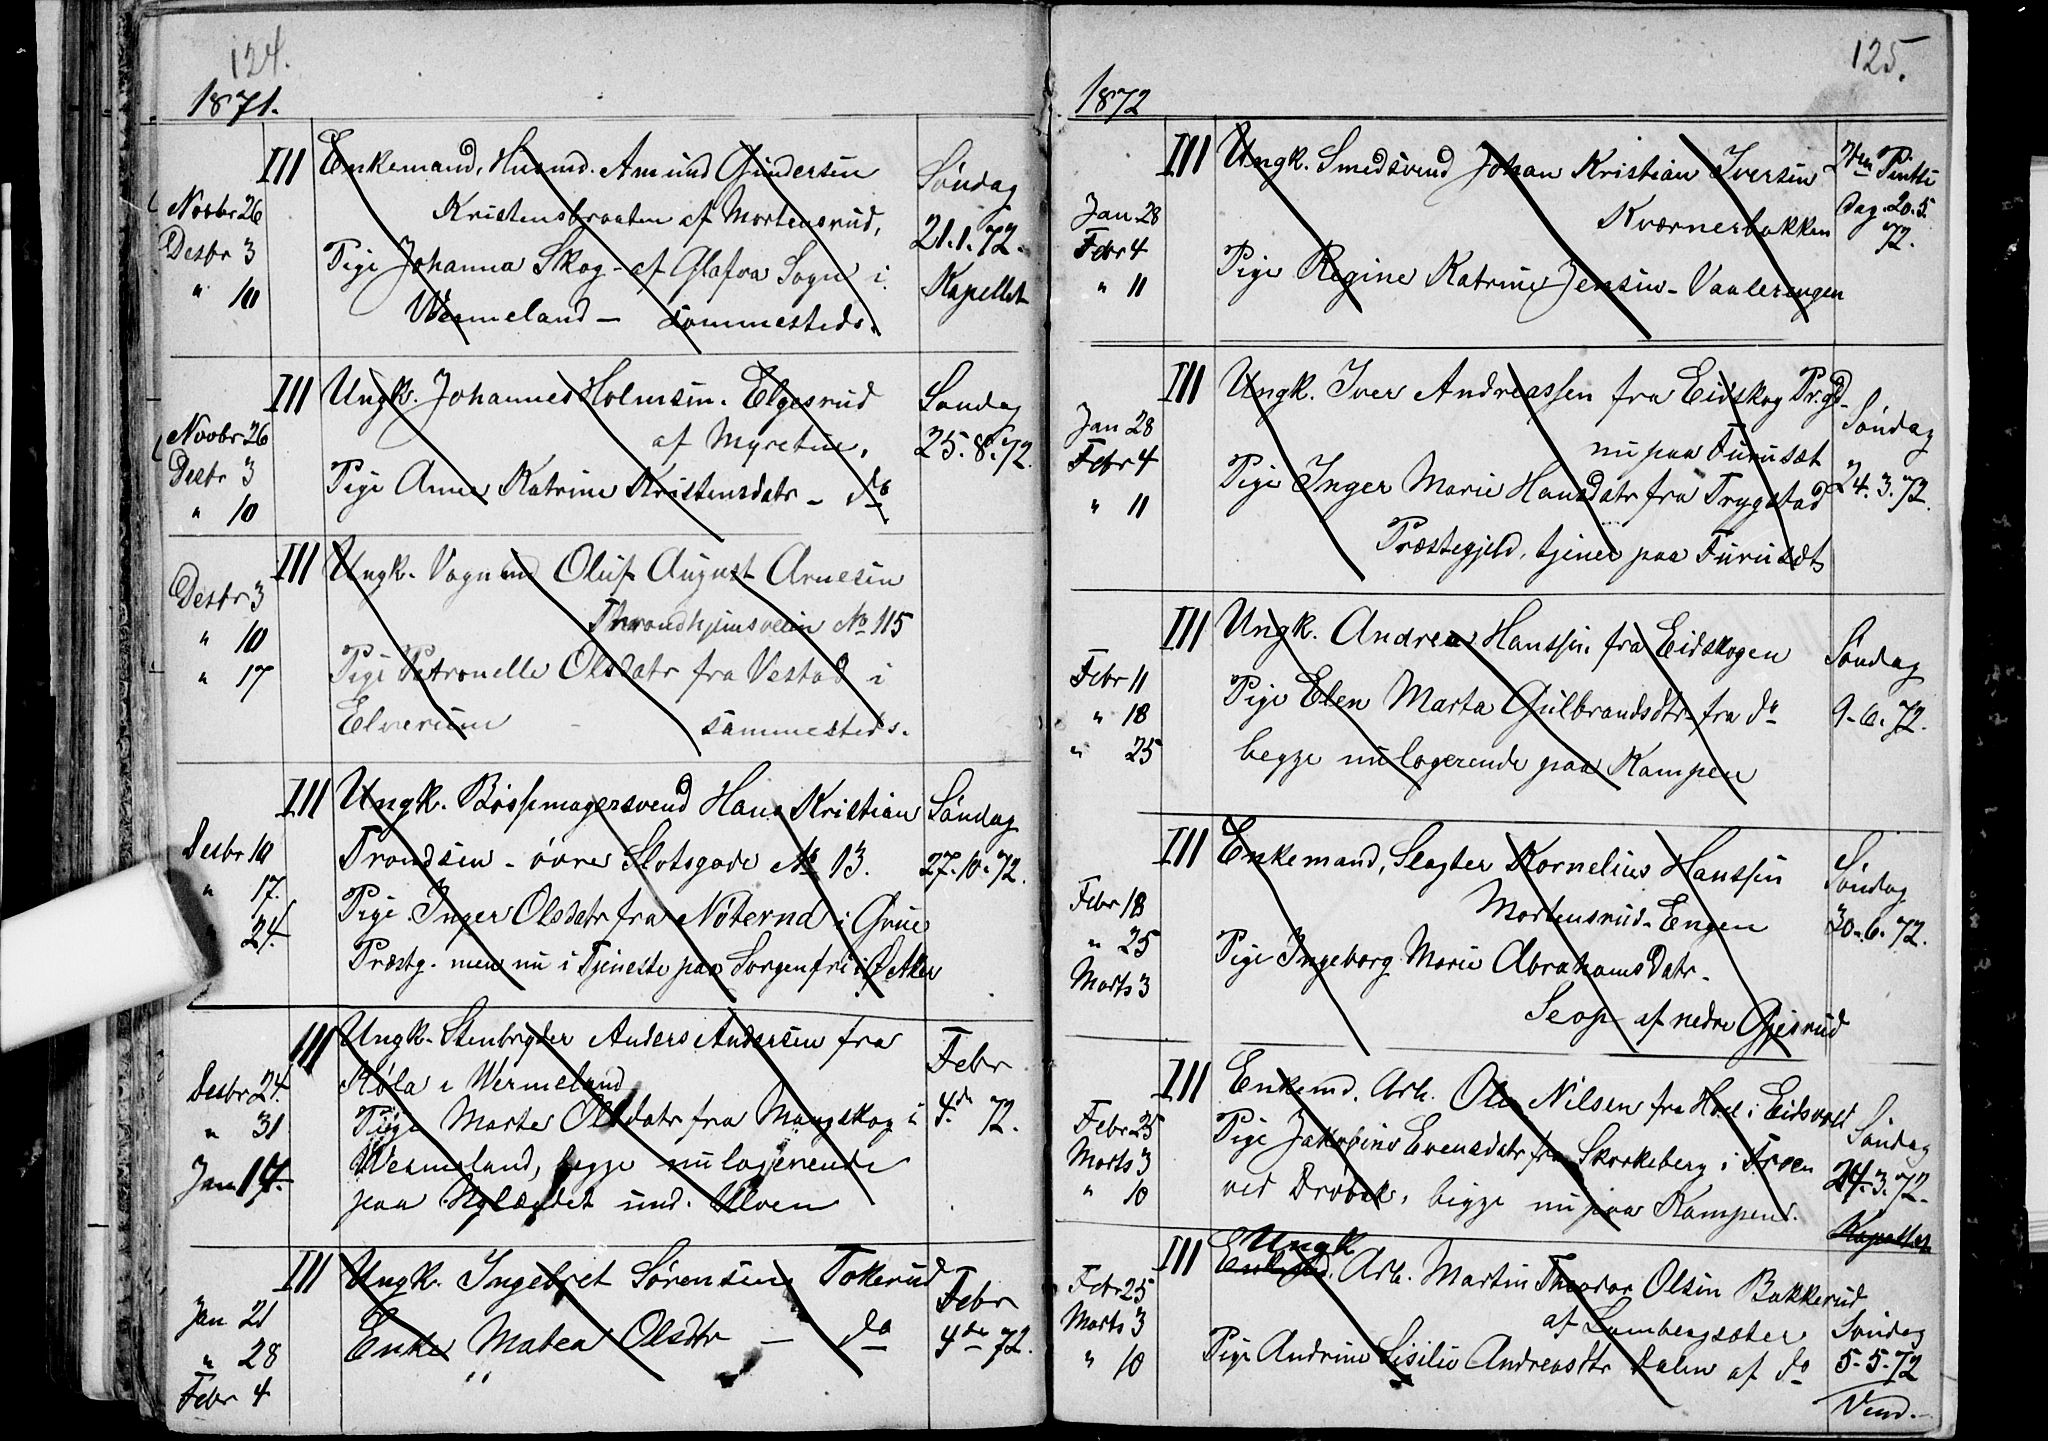 124.
1871.
III Enkemand, Husmd. Amund Gundersen
Novbr 26 Kristensbraaten af Mortensrud,
Desbr 3 Pige Johanna Skog - af Glafva Sogn i
" 10 Wermeland - sammesteds.
Søndag
21.1.72.
Kapellet
III Ungk. Johannes Holmsen. Elgesrud
Novbr 26 af Myretue.
Desbr 3 Pige Anne Katrine Kristensdatr - do
" 10
Søndag
25.8.72.
III Ungk. Vognmd Oluf August Arnesen
Desbr 3 Throndhjemsveien No 115
" 10 Pige Petronelle Olsdatr fra Vestad i
" 17 Elverum - sammesteds.
III Ungk. Bøssmagersvend Hans Kristian
Desbr 10 Trondsen - øvre Slotsgade No 13.
" 17. Pige Inger Olsdatr fra Nøternd i Grue
24. Præstg. men nu i Tjeneste paa Sorgenfri i Ø Aker
Søndag
27.10.72.
III Ungk. Stenbryder Anders Andersen fra
Køla i Wermeland
Desbr 24. Pige Marte Olsdatr fra Mangskog i
" 31 Wermeland, begge nu logerende
Jan 14. paa Nylændet und. Ulven
Febr
4de 72.
III Ungk. Ingebret Sørensen, Tokerud
Jan 21 Enke Matea Olsdtr - do
" 28
Febr 4
Febr
4de 72.
125.
1872
III Ungk. Smedsvend Johan Kristian Iversen
Jan 28 Kværnerbakken
Febr 4 Pige Regine Katrine Jensen - Vaalerengen
" 11
2den Pintse
dag 20.5.
72.
III Ungk. Iver Andreassen fra Eidskog Pr.gd
Jan 28 nu paa Furuset
Febr 4 Pige Inger Marie Hansdatr fra Trygstad
" 11 Præstegjeld, tjener paa Furusæt
Søndag
24.3.72.
III Ungk. Andreas Hanssen fra Eidskogen
Febr 11 Pige Elen Marta Gulbrandsdtr fra do
" 18 begge nu logerende paa Kampen
" 25
Søndag
9.6.72.
III Enkemand, Slagter Kornelius Hanssen
Febr 18 Mortensrud-Engen
" 25 Pige Ingeborg Marie Abrahamsdatr -
Marts 3 af nedre Gjesrud
Søndag
30.6.72.
III Enkemd. Arb. Ole Nilsen fra Hoel i Eidsvold
Febr 25 Pige Jakobine Evensdatr fra Skorkeberg i Froen
Marts 3 ved Drøbak, begge nu paa Kampen.
" 10
Søndag
24.3.72.
Kapellet
Ungk
III Enkemd. Arb. Martin Theodor Olsen Bakkerud
Febr 25 af Lambergsæter
Marts 3 Pige Andrine Sisilie Andreasdtr Dalen af do
" 10
Søndag
5.5.72
Vend.